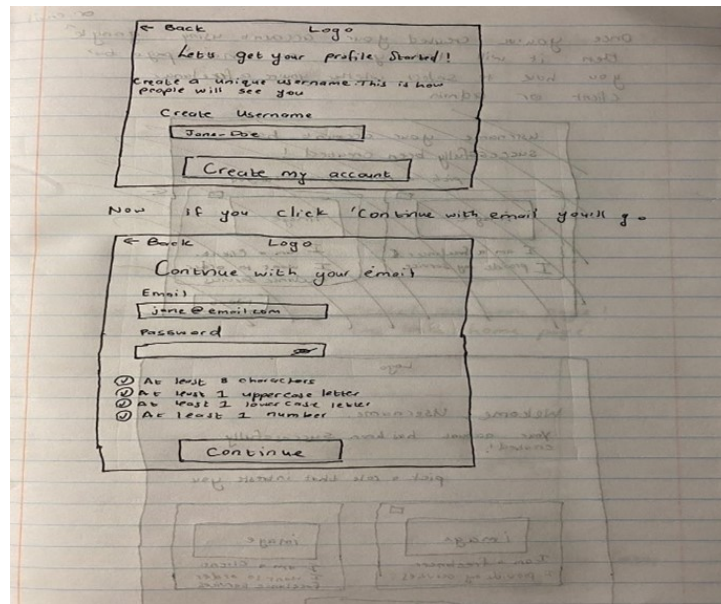 ← Back Logo
Let's get your profile Started!
Create a unique username This is how
people will see you
Create Username
Jane-Doe
Create my account
Now if you click 'Continue with email you'll go
← Back Logo
Continue with your email
Email
jane@email.com
Password
At least 8 characters
At least 1 uppercase letter
At least 1 lowercase letter
At least 1 number
Continue